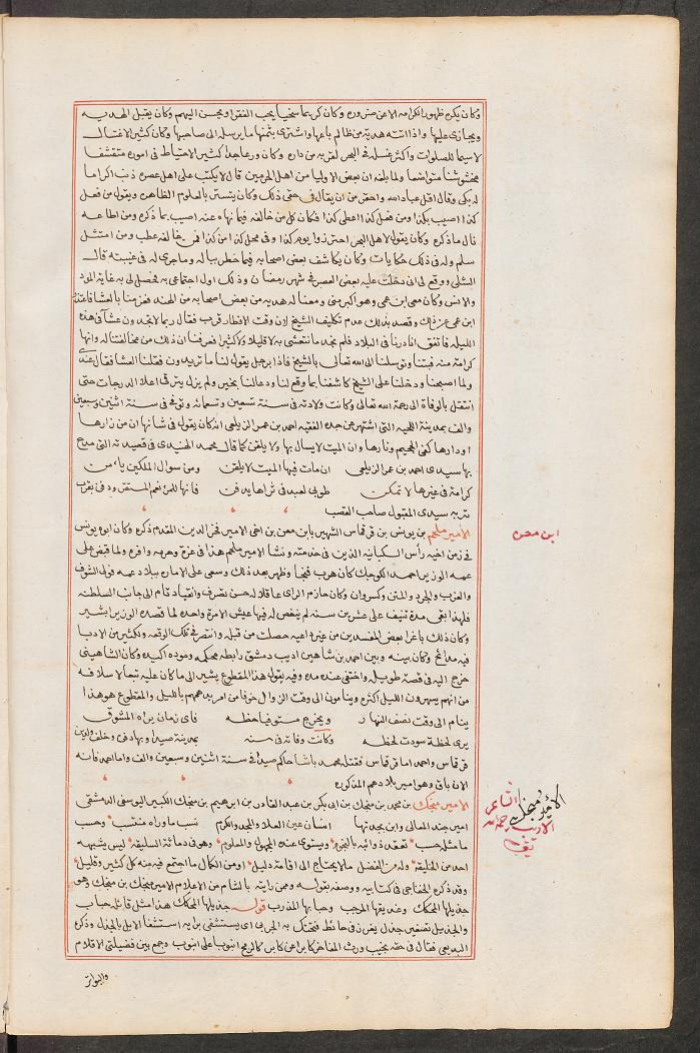 وكان يكره ظهور الكرامه الا عن ضروره وكان كريما سخيا يحب الفقرا ويحسن اليهم وكان يقبل الهديه
ويجازى عليها واذا اتته هدية من ظالم باعها واشترى بثمنها ما يرسله الى صاحبها وكان كثير الاغتسال
لا سيما للصلوات واكثر غسله فى البحر لقربه من داره وكان ورعا جدا كثير الاحتياط فى اموره متقشفا
مخشوشنا متواضعا ولما بلغه ان بعض الاوليا من اهل الحرمين قال لا يكتب على اهل عصره ذنب اكراما
له بكى وقال اقل عباد الله واحقر من ان يقال فى حقى ذلك وكان يتستر بالعلوم الظاهره ويقول من فعل
كذا اصيب بكذا ومن فعل كذا اعطى كذا فكان كل من خالفه فيما نهاه عنه اصيب بما ذكره ومن اطاعه
نال ما ذكره وكان يقول لاهل البحر احترزوا يوم كذا وفى محل كذا من كذا فمن خالفه عطب ومن امتثل
سلم وله فى ذلك حكايات وكان يكاشف بعض اصحابه فيما خطر بباله وما جرى له فى غيبته قال
الشلى ووقع لى ان دخلت عليه بعض العصر فى شهر رمضان وذلك اول اجتماعى به فحصل لى به غاية المدد
والانس وكان معى ابن عمى وهو اكبر منى ومعنا له هديه من بعض اصحابه من الهند فعزم بنا بالعشا فاعتذر
ابن عمى عن ذلك وقصد بذلك عدم تكليف الشيخ لان وقت الافطار قرب فقال ربما لا تجدون عشا فى هذه
الليله فاتفق انا درنا فى البلاد فلم نجد ما نتعشى به لا قليلا ولا كثيرا فعرفنا ان ذلك من مخالفتنا له وانها
كرامة منه فبتنا وتوسلنا الى الله تعالى بالشيخ فاذا برجل يقول لنا ما تريدون فقلنا العشا فقال عندى
ولما اصبحنا ودخلنا على الشيخ كاشفنا بما وقع لنا ودعا لنا بخير ولم يزل يترقى اعلا الدرجات حتى
انتقل بالوفاة الى رحمة الله تعالى وكانت ولادته فى سنة تسعين وتسعمائة وتوفى فى سنة اثنين وسبعين
والف بمدينة اللحيه التى اشتهر عن جده الفقيه احمد بن عمر الزيلعى انه كان يقول فى شانها ان من زارها
او دارها كفى الجحيم ونارها وان الميت لا يسال بها ولا يلقن كما قال محمد الهندى فى قصيدته التى مدح
بها سيدى احمد بن عمر الزيلعى ان مات فيها الميت لا يلقن ومن سوال الملكين يامن
كرامة فى غيرها لا تمكن طوبى لعبد فى ثراها يدفن فانها للمرء نعم المستقر ودفن بقرب
تربه سيدى المقبول صاحب القضب
الامير ملحم بن يونس بن قرقماس الشهير بابن معن بن اخى الامير فخر الدين المقدم ذكره وكان ابوه يونس
فى زمن اخيه رأس السكبانية الذين فى خدمته ونشا الامير ملحم هذا فى عزة وحرمه وافره ولما قبض على
عمه الوزير احمد الكوجك كان هرب فنجا وظهر بعد ذلك وسعى على الاماره ببلاد عمه فولى الشوف
والغرب والجرد والمتن وكسروان وكان حازم الراى عاقلا له حسن تصرف وانقياد تام الى جانب السلطنه
فلهذا بقى مدة تنيف على عشرين سنه لم ينغص له فيها عيش الا مرة واحده لما قصده الوزير بشير
وكان ذلك باغرا بعض المفسدين من غير داعيه حصلت من قبله وانتصر فى تلك الوقعه ولكثير من الادبا
فيه مدائح وكان بينه وبين احمد بن شاهين اديب دمشق رابطة محكمه ومودة اكيده وكان الشاهينى
خرج اليه فى قصة طويله واختفى عنده مده وفيه يقول هذا المقطوع يشير الى ما كان عليه تبعا لاسلافه
من انهم يسهرون الليل اكثره وينامون الى وقت الزوال خوفا من امر يدهمهم بالليل والمقطوع هو هذا
ينام الى وقت نصف النهار ويخرج مستوفيا حظه فاى زمان يراه المشوق
يرى لحظة سودت لحظه وكانت وفاته فى سنه بمدينة صيدا وبها دفن وخلف ولدين
قرقماس واحمد اما قرقماس فقتله محمد باشا حاكم صيدا فى سنة اثنين وسبعين والف واما احمد فانه
الان باق وهو امير بلادهم المذكوره
الامير منجك بن محمد بن منجك بن ابى بكر بن عبد القادر بن ابراهيم بن منجك الكبير اليوسفى الدمشقى
امير جند المعالى وابن بجدتها انسان عين العلا والمجد والكرم نسب ما وراه منتسب وحسب
ما مثله حسب تعقد ذوائبه بالنجوم ويستوى عنده المجهول والمعلوم وهو فى دماثة السليقة ليس يشبهه
احد من الخليقة وله من الفضل ما لا يحتاج الى اقامة دليل ومن الكمال ما اجتمع فيه منه كل كثير وقليل
وقد ذكره الخفاجى فى كتابيه ووصفه بقوله وممن رايته بالشام من الاعلام الامير منجك بن منجك وهو
جذيلها المحكك وعذيقها المرجب وحبابها المدرب قوله جذيلها المحكك هذا مثل قائله حباب
والجذيل تصغير جذل يغرز فى حائط فتحتك به الجربى اى يستشفى برايه استشفا الابل بالجذل وذكره
البديعى فقال فى حقه نجيب ورث المفاخر كابرا عن كابر كالرمح انبوبا على انبوب وجمع بين فضيلتى الاقلام
والبواتر
ابن معن
الامير منجك الشاعر
الاديب رحمه الله